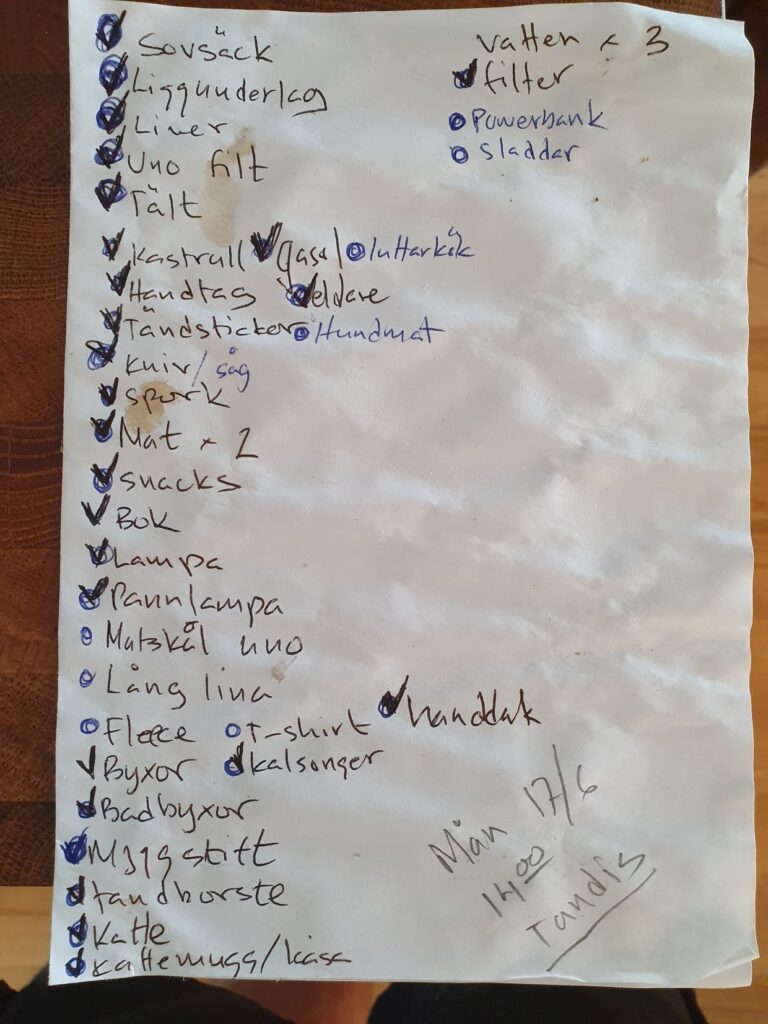 Sovsäck
Liggunderlag
Liner
Uno filt
Tält
Kastrull gasol luftarkök
Handtag eldare
Tändsticker Hundmat
Kniv/såg
Spork
Mat x 2
Snacks
Bok
Lampa
Pannlampa
Matskål uno
Lång lina
Fleece T-shirt handduk
Byxor kalsonger
Badbyxor
Myggstift
tandborste
Kaffe
Kaffemugg/kåsa
Vatten x 3
filter
Powerbank
Sladdar
Mån 17/6
14.00
Tandis